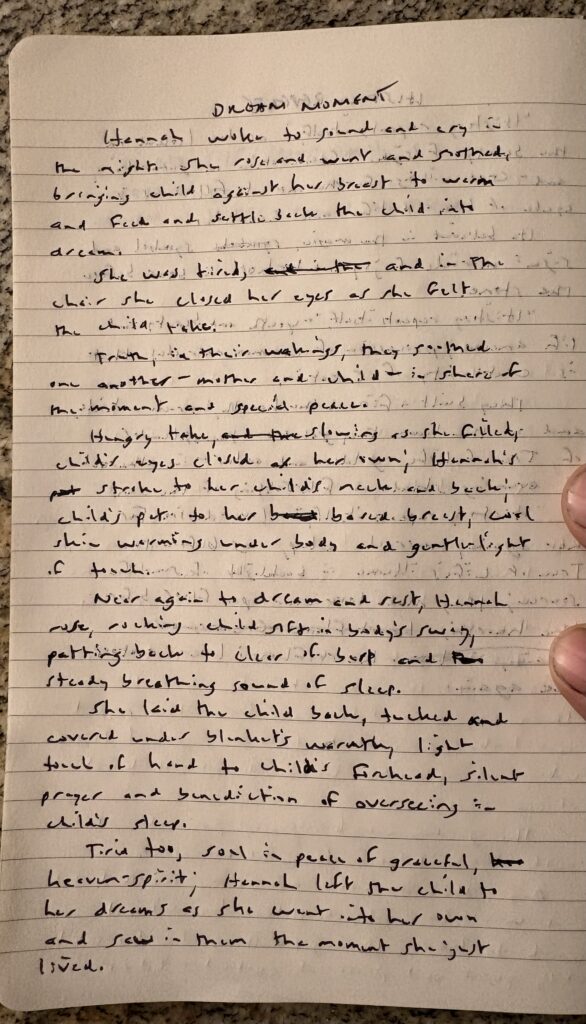 DREAM MOMENT
Hannah woke to sound and cry in
the night. She rose and went and soothed,
bringing child against her breast to warm
and feed and settle back the child into
dream.
She was tired, and in the and in the
chair she closed her eyes as she felt
the child take.
Truth, in their wakings, they soothed
one another - mother and child - in share of
the moment and special peace.
Hungry take, and the slowing as she filled,
child's eyes closed as her own; Hannah's
pat stroke to her child's neck and back;
child's pat to her bared breast, cool
skin warming under body and gentle light
of touch.
Near again to dream and rest, Hannah
rose, rocking child soft in body's sway,
patting back to clear of burp and
steady breathing sound of sleep.
She laid the child back, tucked and
covered under blanket's warmth, light
touch of hand to child's forehead, silent
prayer and benediction of overseeing in
child's sleep.
Tired too, soul in peace of graceful,
heaven-spirit; Hannah left the child to
her dreams as she went into her own
and saw in them the moment she just
lived.